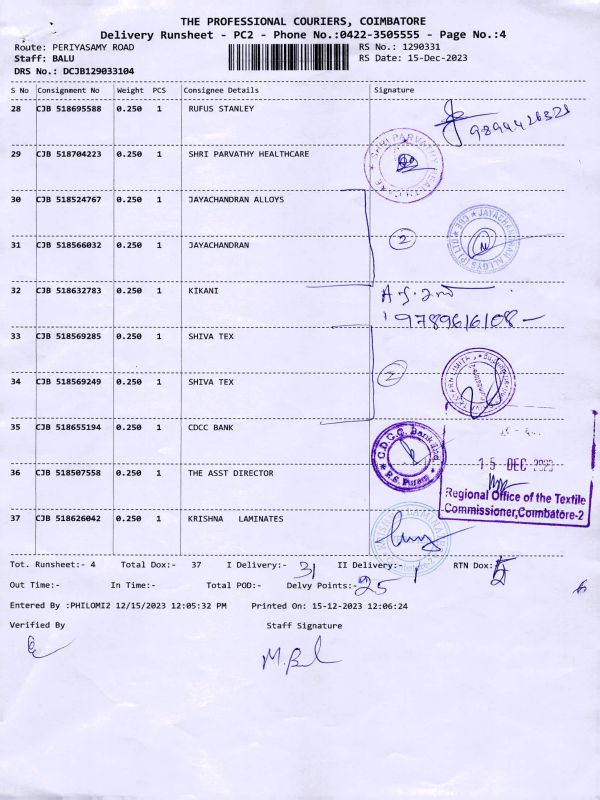 THE PROFESSIONAL COURIERS, COIMBATORE
Delivery Runsheet - PC2 - Phone No.:0422-3505555 - Page No.:4
Route: PERIYASAMY ROAD
RS No.: 1290331
Staff: BALU
RS Date: 15-Dec-2023
DRS No.: DCJB129033104
S No Consignment No Weight PCS Consignee Details Signature
28 CJB 518695588 0.250 1 RUFUS STANLEY
29 CJB 518704223 0.250 1 SHRI PARVATHY HEALTHCARE
SHRI PARVATHY HEALTH CARE
30 CJB 518524767 0.250 1 JAYACHANDRAN ALLOYS
31 CJB 518566032 0.250 1 JAYACHANDRAN
2
32 CJB 518632783 0.250 1 KIKANI
9789616108
33 CJB 518569285 0.250 1 SHIVA TEX
34 CJB 518569249 0.250 1 SHIVA TEX
2
35 CJB 518655194 0.250 1 CDCC BANK
C.D.C.C. Bank
R.S. Puram
15 DEC 2023
36 CJB 518507558 0.250 1 THE ASST DIRECTOR
Regional Office of the Textile
Commissioner,Coimbatore-2
37 CJB 518626042 0.250 1 KRISHNA LAMINATES
Tot. Runsheet:- 4 Total Dox:- 37 I Delivery:- 31 II Delivery:- 1 RTN Dox:
Out Time:- In Time:- Total POD:- Delvy Points:- 25
Entered By :PHILOMI2 12/15/2023 12:05:32 PM Printed On: 15-12-2023 12:06:24
Verified By Staff Signature